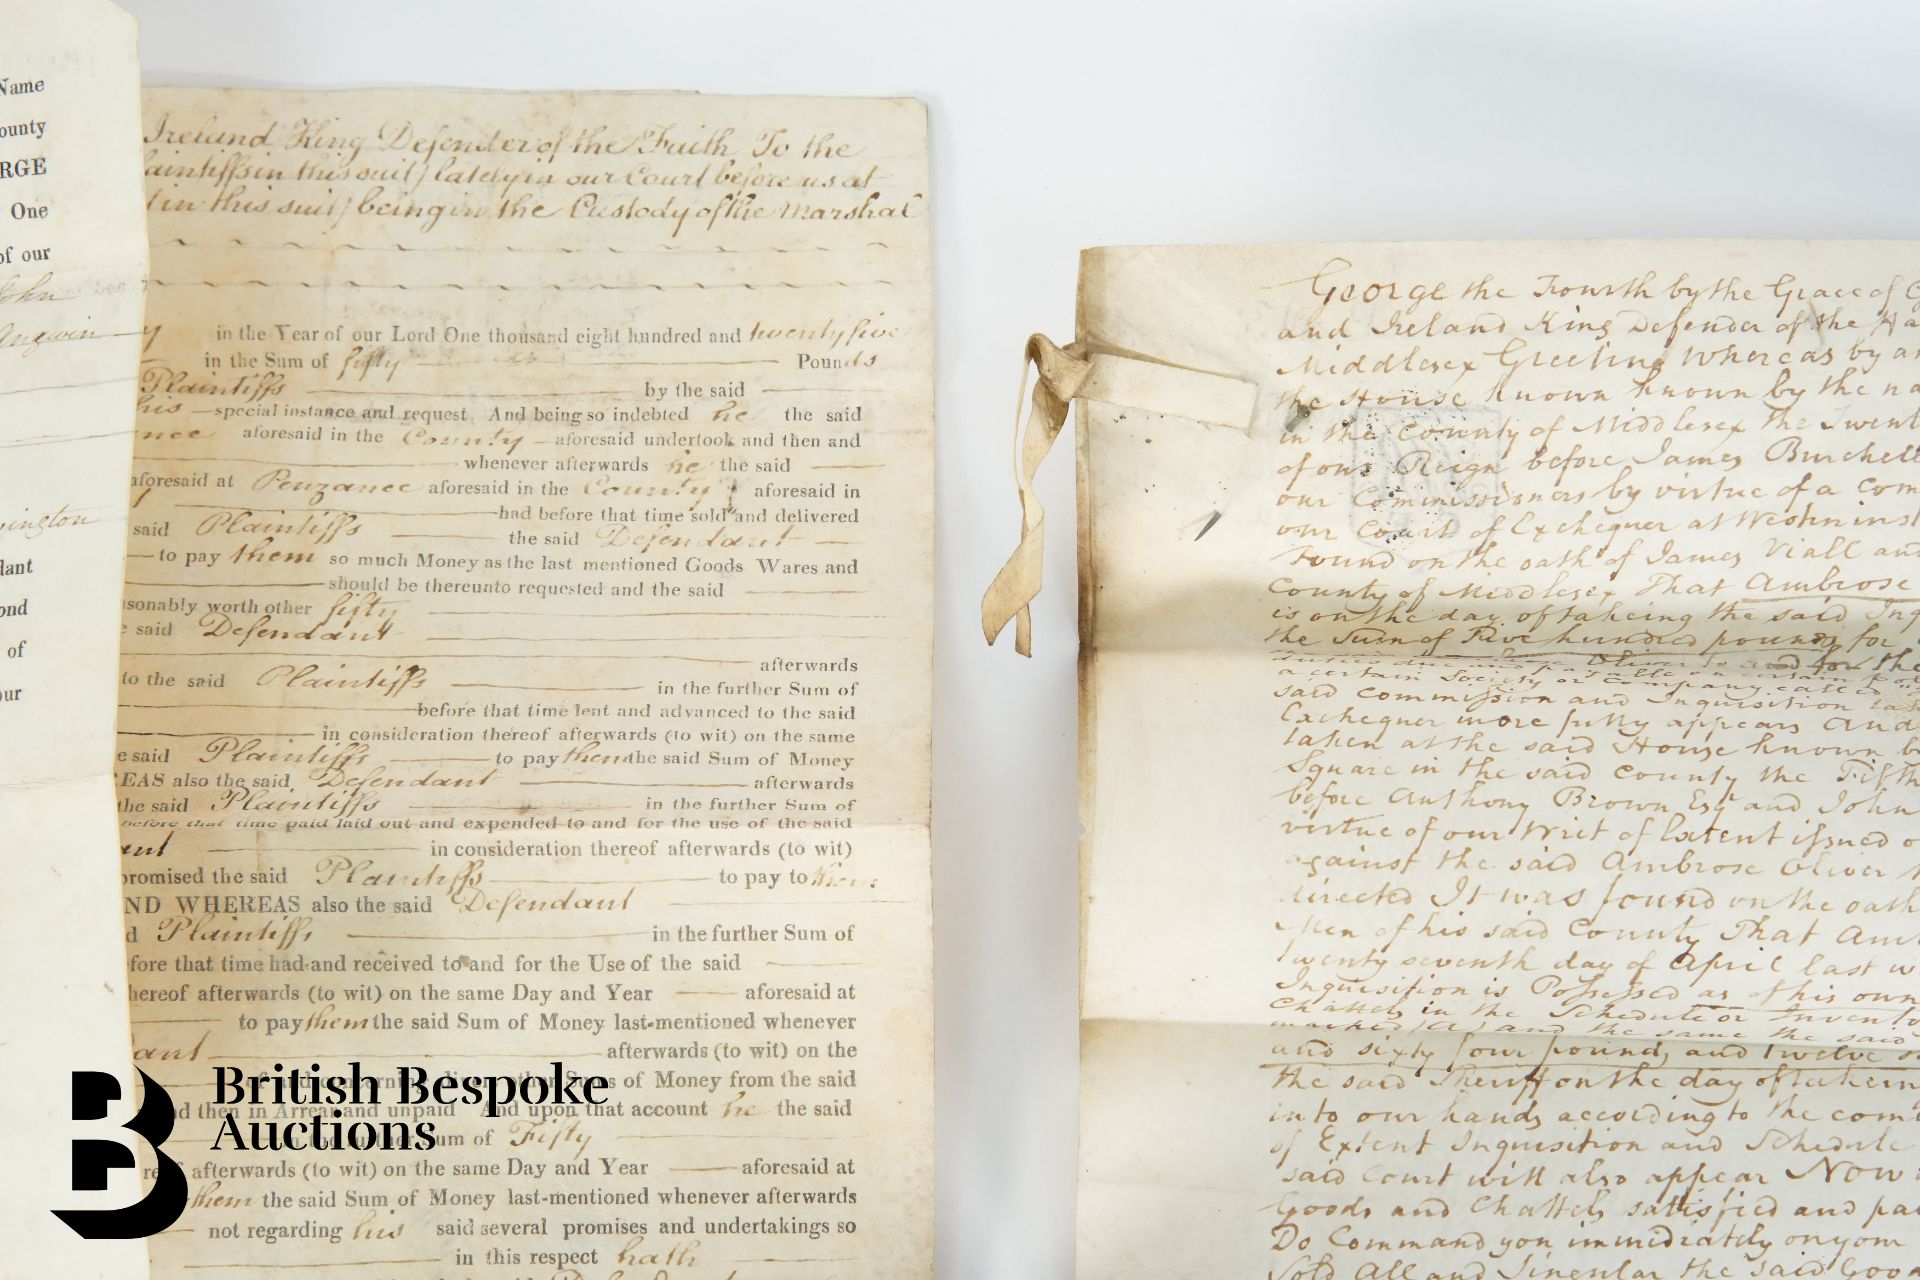 Name
ounty
RGE
One
of our
John
Angwin
vington
dant
ond
of
our
Ireland King Defender of the Faith To the
laintiffs in this suit) lately in our Court before us at
t in this suit) being in the Custody of the Marshal
y in the Year of our Lord One thousand eight hundred and twenty five
in the Sum of fifty Pounds
Plaintiffs by the said
his special instance and request And being so indebted he the said
ance aforesaid in the County aforesaid undertook and then and
whenever afterwards he the said
aforesaid at Penzance aforesaid in the County aforesaid in
had before that time sold and delivered
said Plaintiffs the said Defendant
to pay them so much Money as the last mentioned Goods Wares and
should be thereunto requested and the said
sonably worth other fifty
e said Defendant
afterwards
to the said Plaintiffs in the further Sum of
before that time lent and advanced to the said
in consideration thereof afterwards (to wit) on the same
e said Plaintiffs to pay them the said Sum of Money
EAS also the said Defendant afterwards
the said Plaintiffs in the further Sum of
before that time paid laid out and expended to and for the use of the said
ant in consideration thereof afterwards (to wit)
promised the said Plaintiffs to pay to them
ND WHEREAS also the said Defendant
d Plaintiffs in the further Sum of
fore that time had and received to and for the Use of the said
hereof afterwards (to wit) on the same Day and Year aforesaid at
to pay them the said Sum of Money last-mentioned whenever
ant afterwards (to wit) on the
of and concerning divers other Sums of Money from the said
nd then in Arrear and unpaid And upon that account he the said
in the further Sum of Fifty
reof afterwards (to wit) on the same Day and Year aforesaid at
them the said Sum of Money last-mentioned whenever afterwards
not regarding his said several promises and undertakings so
in this respect hath
George the Fourth by the Grace of G
and Ireland King Defender of the Fa
Middlesex Greeting Whereas by an
the House known known by the na
in the County of Middlesex the Twent
of our Reign before James Burchell
our Commissioners by virtue of a Com
our Court of Exchequer at Westminst
Found on the oath of James Viall and
County of Middlesex That Ambrose
is on the day of takeing the said Inq
the Sum of Five hundred pounds for
and for the
a certain Society or Company called
said Commission and Inquisition
Exchequer more fully appears And
taken at the said House known b
Square in the said County the Fifth
before Anthony Brown Esq and John
virtue of our Writ of Extent issued o
against the said Ambrose Oliver
directed It was found on the oath
Men of his said County That Am
Twenty seventh day of April last
Inquisition is Possessed as of his own
Chattels in the Schedule or Invento
marked (A) and the same the said
and sixty four pounds and twelve s
the said Sheriff on the day of takein
into our hands according to the com
of Extent Inquisition and Schedule
said Court will also appear Now
Goods and Chattels satisfied and pa
Do Command you immediately on you
Sold All and Singular the said Goo
British Bespoke
Auctions